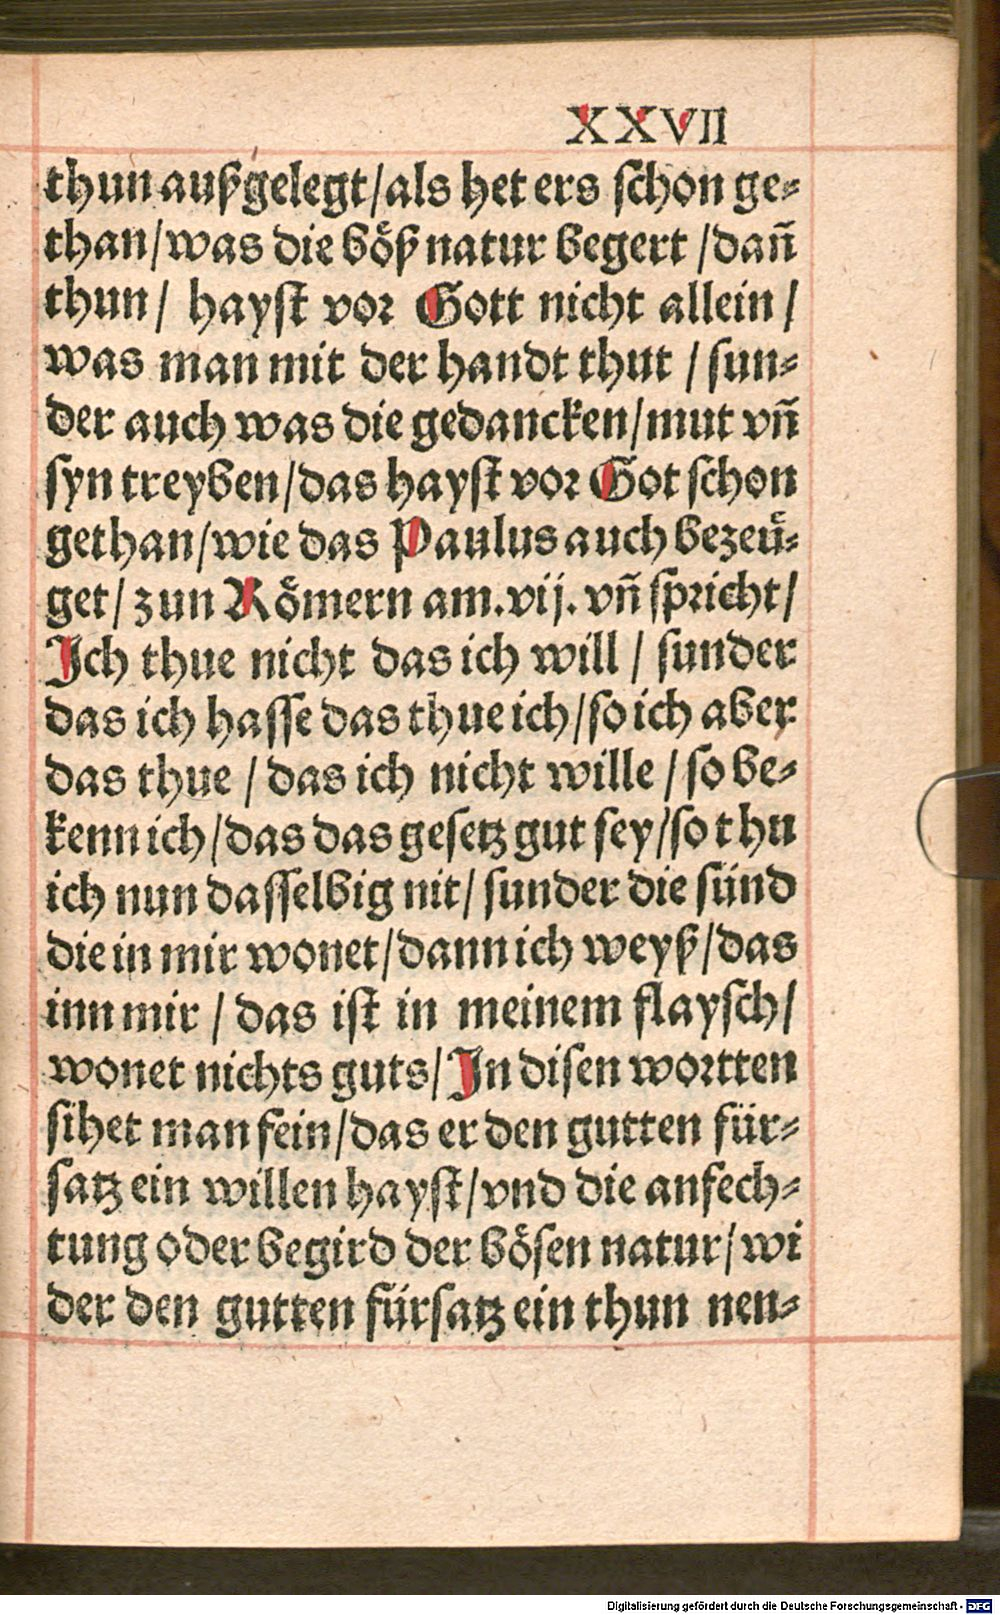 XXVII
thun außgelegt/als het ers schon ge-
than/was die böß natur begert /dañ
thun/ hayst vor Gott nicht allein/
was man mit der handt thut / sun-
der auch was die gedancken/mut vñ
syn treyben/das hayst vor Got schon
gethan/wie das Paulus auch bezeü-
get/ zun Römern am.vij. vñ spricht/
Ich thue nicht das ich will / sunder
das ich hasse das thue ich/so ich aber
das thue / das ich nicht wille / so be-
kenn ich/das das gesetz gut sey/so thu
ich nun dasselbig nit/ sunder die sünd
die in mir wonet/dann ich weyß/das
inn mir / das ist in meinem flaysch/
wonet nichts guts/ In disen wortten
sihet man fein/das er den gutten für-
satz ein willen hayst/vnd die anfech-
tung oder begird der bösen natur/ wi
der den gutten fürsatz ein thun nen-
Digitalisierung gefördert durch die Deutsche Forschungsgemeinschaft - DFG